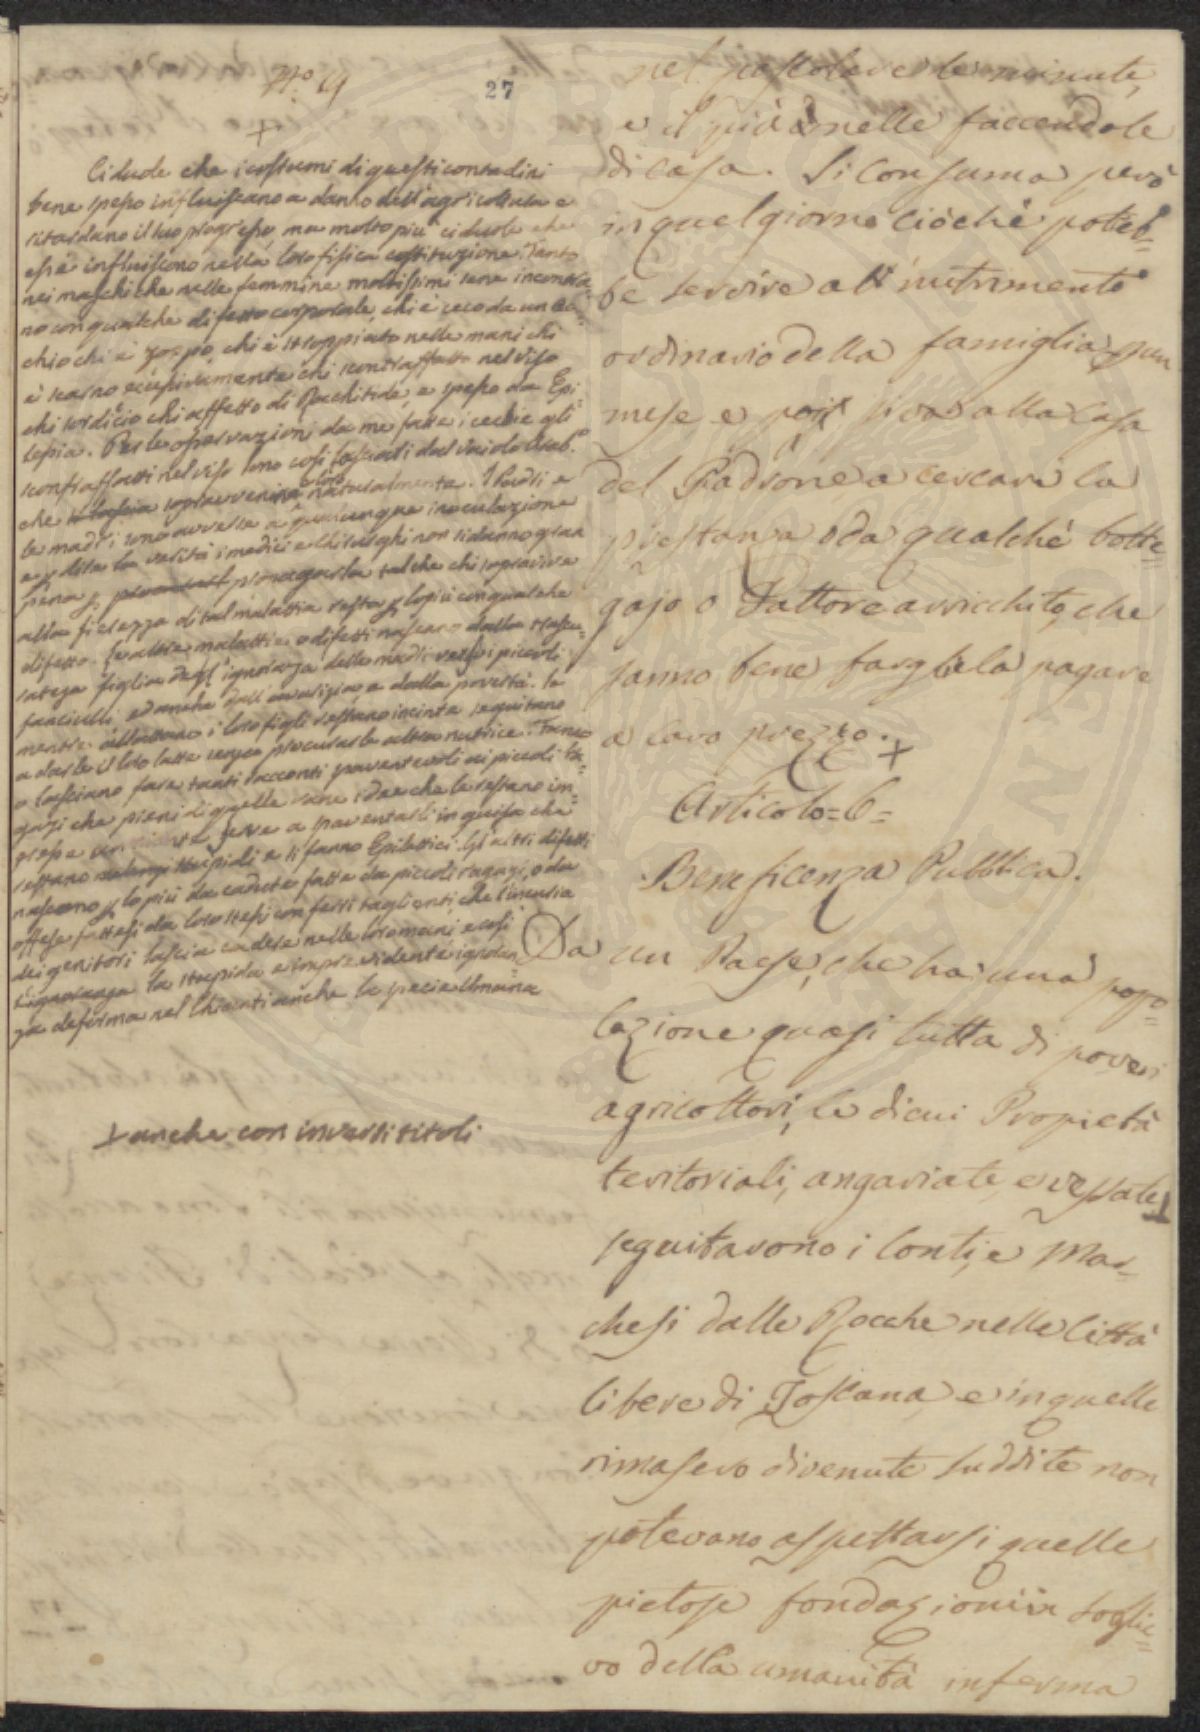 N.º 9
27
+
Ci duole che i costumi di questi contadini
bene spesso influiscano a danno dell'agricoltura e
ritardano il suo progresso, ma molto più ci duole che
essi influiscono nella loro fisica costituzione. Tanto
nei maschi che nelle femmine moltissimi se ne incontra
no con qualche difetto corporale, chi è ceco da un oc
chio chi è zoppo, chi è stroppiato nelle mani chi
è scarno eccessivamente chi contraffatto nel viso
chi sordicio chi affetto di Rachitide, e spesso da Epi
lepsia. Per le osservazioni da me fatte i cechi e gli
contraffatti nel viso sono così lasciati dal vaiolo Arab.º
che sopravvenire naturalmente. I Padri e
le madri sono avverse a qualunque inoculazione
e dita la verità i medici e chirurghi non si danno gran
pena p. propagarla talche chi sopravive
alla fierezza di tal malattia resta p. lo più con qualche
difetto. Le altre malattie, o difetti nascano dalla trascu
ratezza figlia dell'ignoranza delle madri verso i piccoli
fanciulli ed anche dall'avarizia e dalla povertà. Se
mentre allattano i loro figli restano incinte seguitano
a darle il loro latte senza procurarle altra nutrice. Fanno
o lasciano fare tanti racconti paventevoli ai piccoli ra=
gazi che pieni di quelle vane idee che le restano im=
presse un niente serve a paventarli in guisa che
restano stupidi e si fanno Epilettici. Gli altri difetti
nascono p. lo più da cadute fatte da piccoli ragazi, o da
offese fattesi da loro stessi con ferri taglienti che l'incuria
dei genitori lascia cadere nelle loro mani e così
L'ignoranza la stupida e improvidente ignoran=
za deforma nel Chianti anche la specie Umana
⊥ anche con inversi titoli
nel pascolare le minute,
e il più nelle faccendole
di casa. Si consuma però
in quel giorno ciòchè potreb=
be servire al nutrimento
ordinario della famiglia p. un
mese e poi si va alla casa
del Padrone a cercare la
prestanza o da qualchè botte
gajo o Fattore arricchito, che
sanno bene fargliela pagare
a caro prezzo. +
Articolo = 6 =
Beneficenza Pubblica.
Da un Paese, che ha una popo=
lazione quasi tutta di poveri
agricoltori, le di cui Propietà
teritoriali, angariate, e vessate ⊥
seguitarono i Conti, e Mar=
chesi dalle Rocche nelle Città
libere di Toscana, e in quelle
rimasero divenute suddite non
potevano aspettarsi quelle
pietose fondazioni in soglie=
vo della umanità inferma